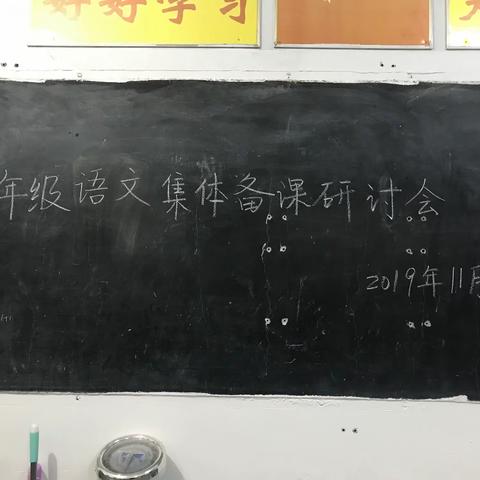 好好学习
年级语文集体备课研讨会
2019年11月